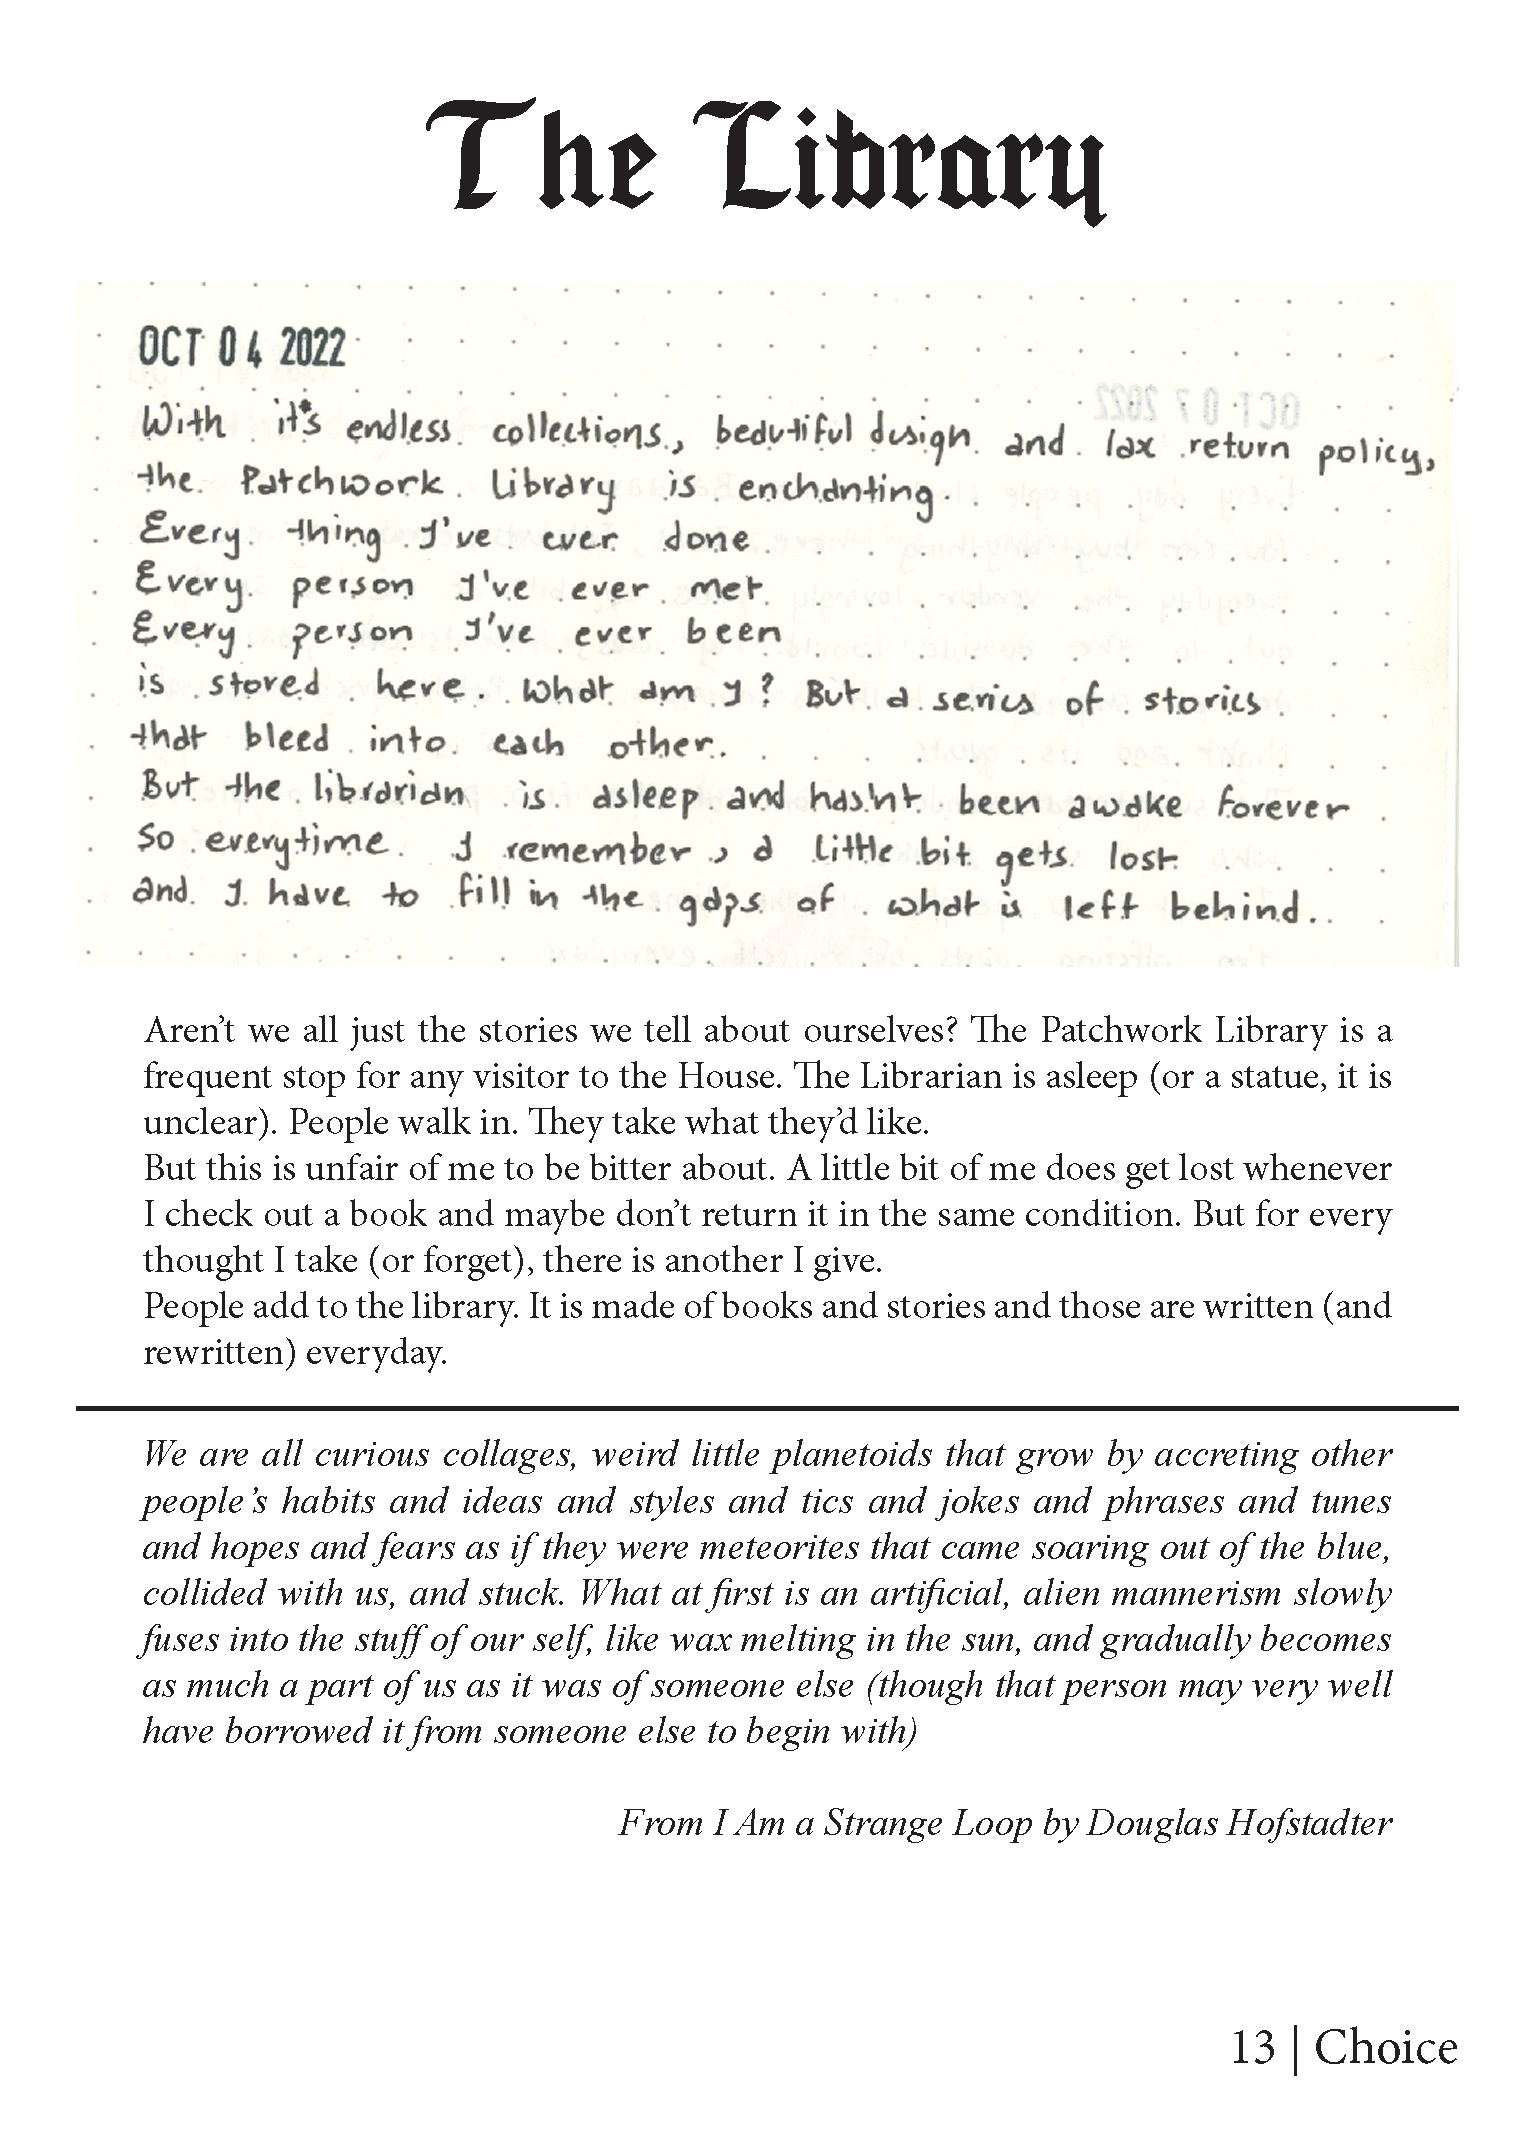 The Library
OCT 04 2022
With it's endless collections, beautiful design and lax return policy,
the Patchwork Library is enchanting.
Every thing I've ever done
Every person I've ever met
Every person I've ever been
is stored here. What am I? But a series of stories
that bleed into each other.
But the librarian is asleep and has'nt been awake forever
So everytime I remember, a little bit gets lost
and I have to fill in the gaps of what is left behind..
Aren’t we all just the stories we tell about ourselves? The Patchwork Library is a
frequent stop for any visitor to the House. The Librarian is asleep (or a statue, it is
unclear). People walk in. They take what they’d like.
But this is unfair of me to be bitter about. A little bit of me does get lost whenever
I check out a book and maybe don’t return it in the same condition. But for every
thought I take (or forget), there is another I give.
People add to the library. It is made of books and stories and those are written (and
rewritten) everyday.
We are all curious collages, weird little planetoids that grow by accreting other
people’s habits and ideas and styles and tics and jokes and phrases and tunes
and hopes and fears as if they were meteorites that came soaring out of the blue,
collided with us, and stuck. What at first is an artificial, alien mannerism slowly
fuses into the stuff of our self, like wax melting in the sun, and gradually becomes
as much a part of us as it was of someone else (though that person may very well
have borrowed it from someone else to begin with)
From I Am a Strange Loop by Douglas Hofstadter
13 | Choice